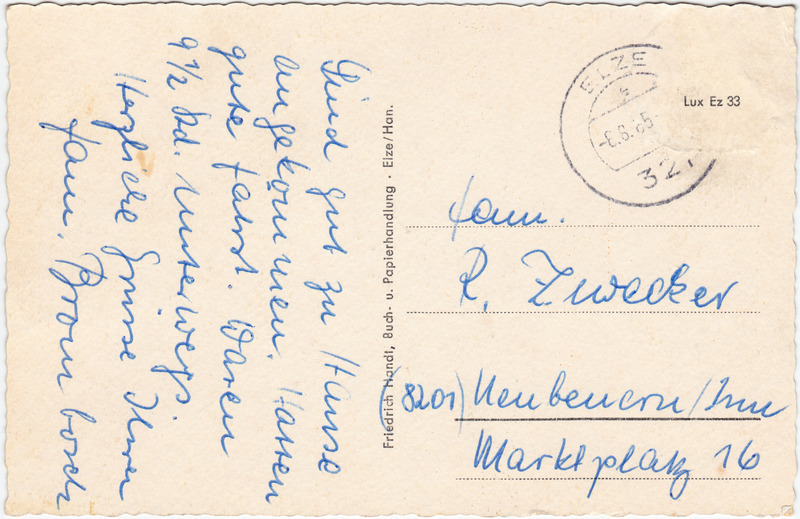 Sind gut zu Hause
angekommen. Hatten
gute Fahrt. Waren
9 1/2 Std. Unterwegs.
Herzliche Grüsse Ihnen
Fam. Brombosch
Friedrich Handt, Buch- u. Papierhandlung · Elze/Han.
ELZE
-8.6.65
321
Lux Ez 33
Fam.
R. Zwecker
(8201) Neubeuern/Inn
Marktplatz 16